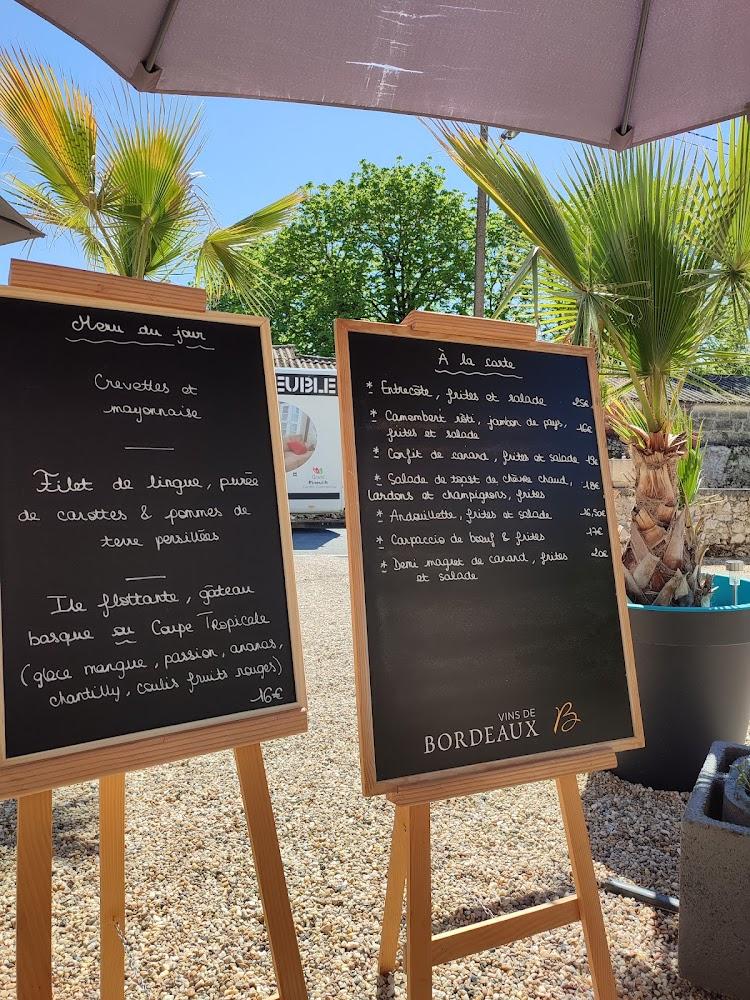 Menu du jour
Crevettes et
mayonnaise
Filet de lingue, purée
de carottes & pommes de
terre persillées
Ile flottante, gâteau
basque ou Coupe Tropicale
(glace mangue, passion, ananas,
chantilly, coulis fruits rouges)
16€
À la carte
* Entrecôte, frites et salade 25€
* Camembert rôti, jambon de pays, 16€
frites et salade
* Confit de canard, frites et salade 19€
* Salade de toast de chèvre chaud, 18€
lardons et champignons, frites
* Andouillette, frites et salade 16,50€
* Carpaccio de bœuf & frites 17€
* Demi magret de canard, frites 20€
et salade
VINS DE
BORDEAUX B
EUBLE